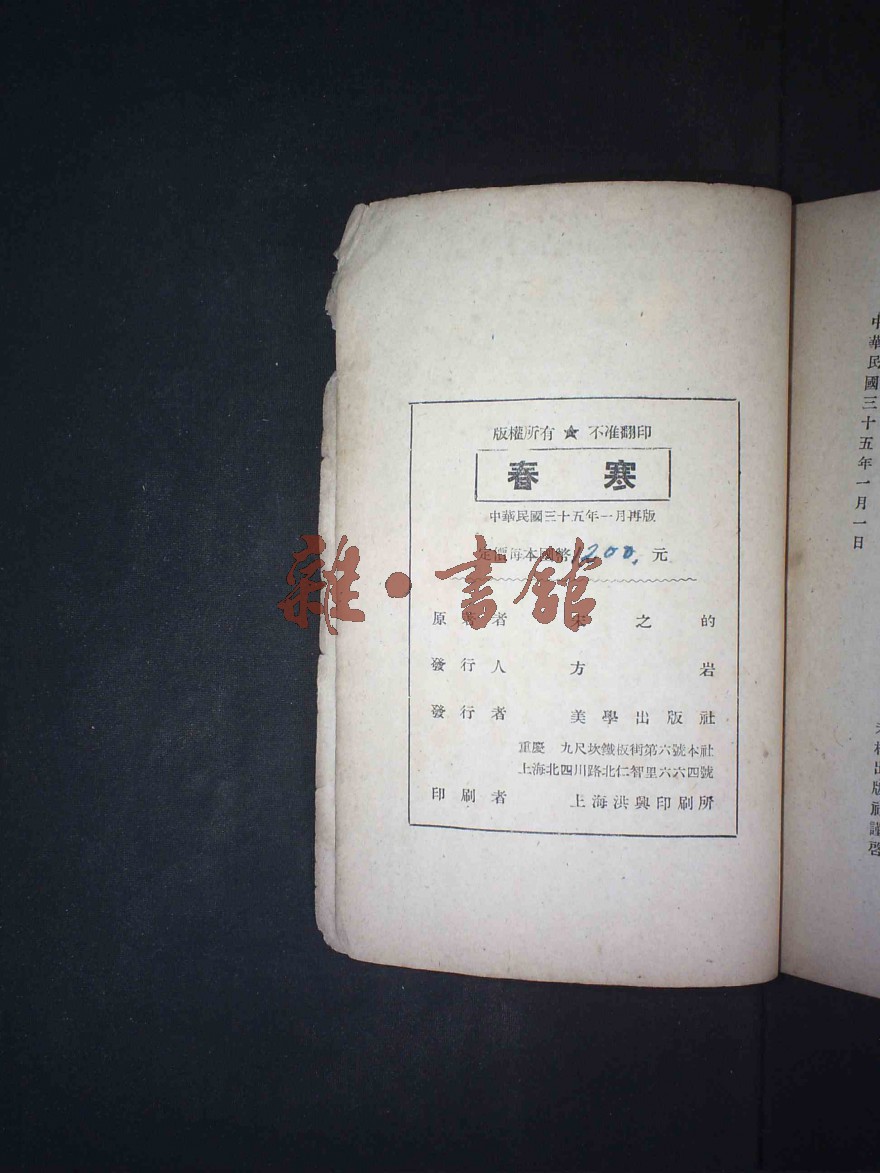 版權所有 ★ 不准翻印
春 寒
中華民國三十五年一月再版
定價每本國幣 200. 元
原著者 宋之的
發行人 方岩
發行者 美學出版社
重慶 九尺坎鐵板街第六號本社
上海北四川路北仁智里六六四號
印刷者 上海洪興印刷所
中華民國三十五年一月一日
出版社謹啓
雜·書館